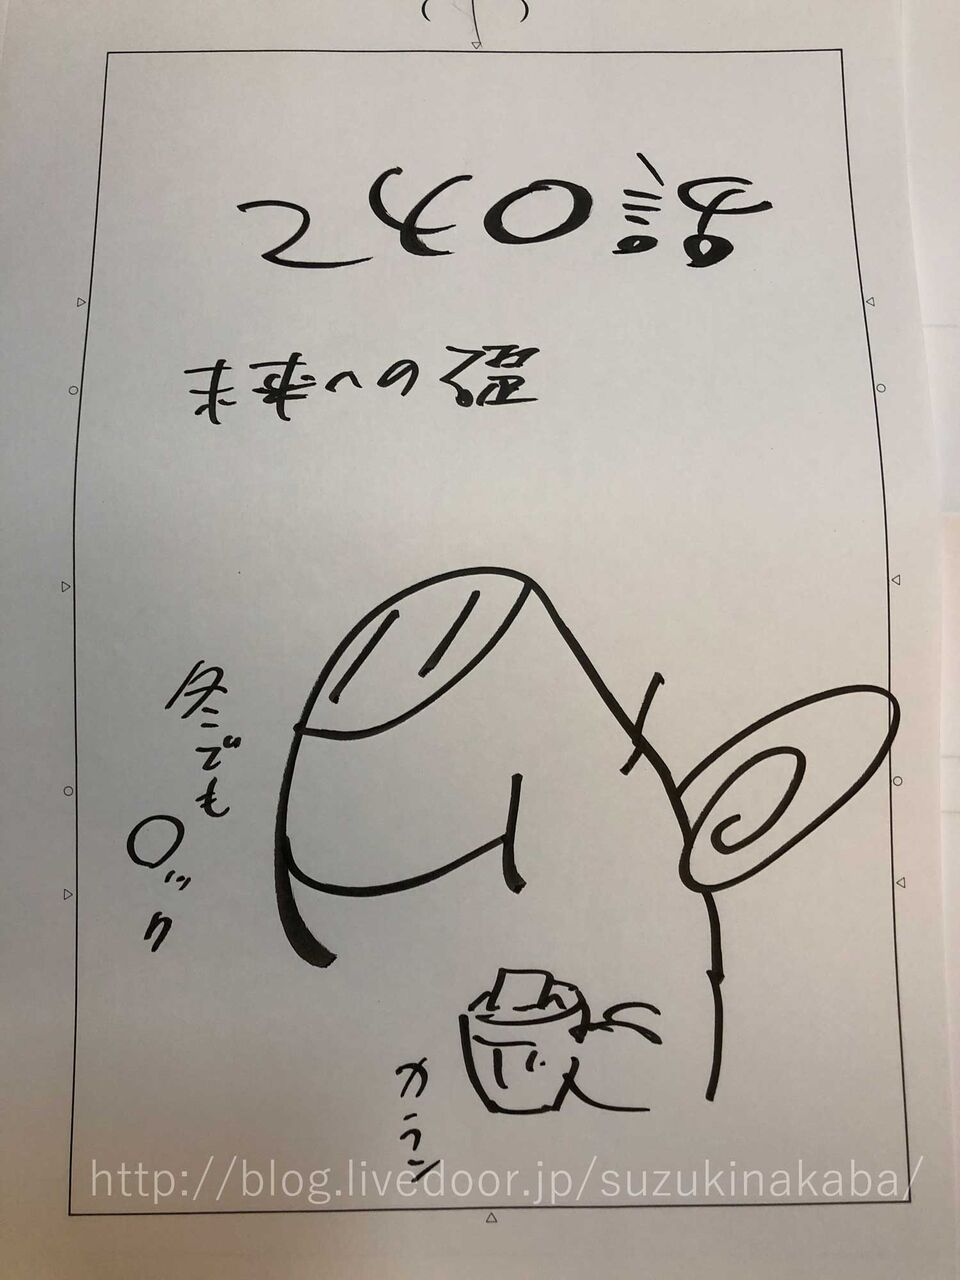 240話
未来への
冬でも
ロック
カラン
http://blog.livedoor.jp/suzukinakaba/